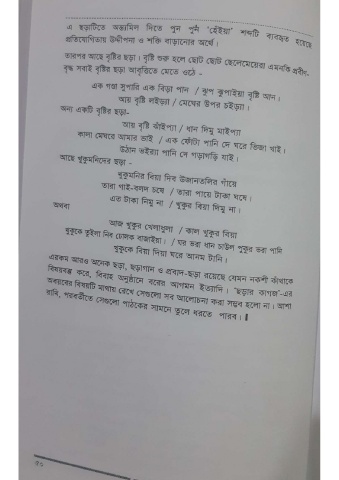 এ ছড়াটিতে অন্ত্যমিল দিতে পুন পুন 'হেঁইয়া' শব্দটি ব্যবহৃত হয়েছে
প্রতিযোগিতায় উদ্দীপনা ও শক্তি বাড়ানোর অর্থে।
তারপর আছে বৃষ্টির ছড়া। বৃষ্টি শুরু হলে ছোট ছোট ছেলেমেয়েরা এমনকি প্রবীণ-
বৃদ্ধ সবাই বৃষ্টির ছড়া আবৃত্তিতে মেতে ওঠে -
এক গজা সুপারি এক বিড়া পান / ঝুপ ঝুপাইয়া বৃষ্টি আন।
আয় বৃষ্টি লইড়্যা / মেঘের উপর চইড়্যা।
অন্য একটি বৃষ্টির ছড়া-
আয় বৃষ্টি ঝাঁইপ্যা / ধান দিমু মাইপ্যা
কালা মেঘরে আমার ভাই / এক ফোঁটা পানি দে ঘরে ভিজা যাই।
উঠান ভইর‍্যা পানি দে গড়াগড়ি যাই।
আছে খুকুমনিদের ছড়া -
খুকুমনির বিয়া দিব উজানতলির গাঁয়ে
তারা গাই-বলদ চষে / তারা পায়ে টাকা ঘষে।
এত টাকা নিমু না / খুকুর বিয়া দিমু না।
অথবা
আজ খুকুর খেলাধুলা / কাল খুকুর বিয়া
খুকুকে তুইলা নিব ঢোলক বাজাইয়া। / ঘর ভরা ধান চাউল পুকুর ভরা পানি
খুকুকে বিয়া দিয়া ঘরে আনম টানি।
এরকম আরও অনেক ছড়া, ছড়াগান ও প্রবাদ-ছড়া রয়েছে যেমন নকশী কাঁথাকে
বিষয়বস্তু করে, বিবাহ অনুষ্ঠানে বরের আগমন ইত্যাদি। 'ছড়ার কাগজ'-এর
অবয়বের বিষয়টি মাথায় রেখে সেগুলো সব আলোচনা করা সম্ভব হলো না। আশা
রাখি, পরবর্তীতে সেগুলো পাঠকের সামনে তুলে ধরতে পারব।